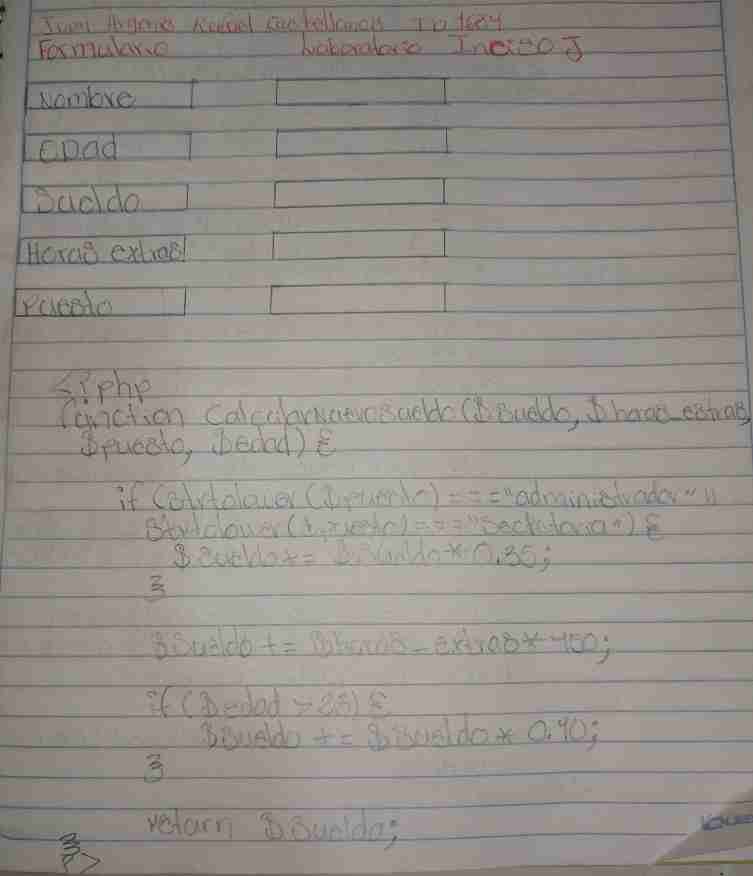 Formulario Laboratorio Inciso J
Nombre
EDad
Sueldo
Horas extras
Puesto
<?php
function CalcularNuevoSueldo($Sueldo, $horas_extras,
$puesto, $edad) {
if (strtolower($puesto) === "administrador" ||
strtolower($puesto) === "Secretaria") {
$Sueldo += $Sueldo * 0.35;
}
$Sueldo += $horas_extras *
if ($edad > ) {
$Sueldo += $Sueldo *
}
return $Sueldo;
}
?>